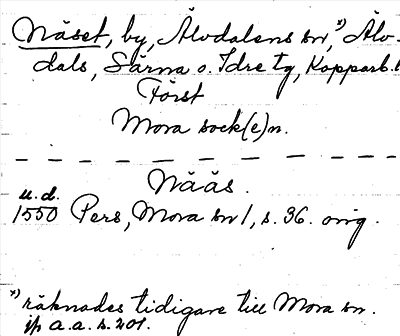 Näset, by, Älvdalens sn,*) Älv-
dals, Särna o. Idre tg, Kopparb. l
Först
Mora sock(e)n.
Nääs.
u.d.
1550 Pers, Mora sn 1, s. 36. orig.
*) räknades tidigare till Mora sn.
jfr a.a. s. 201.